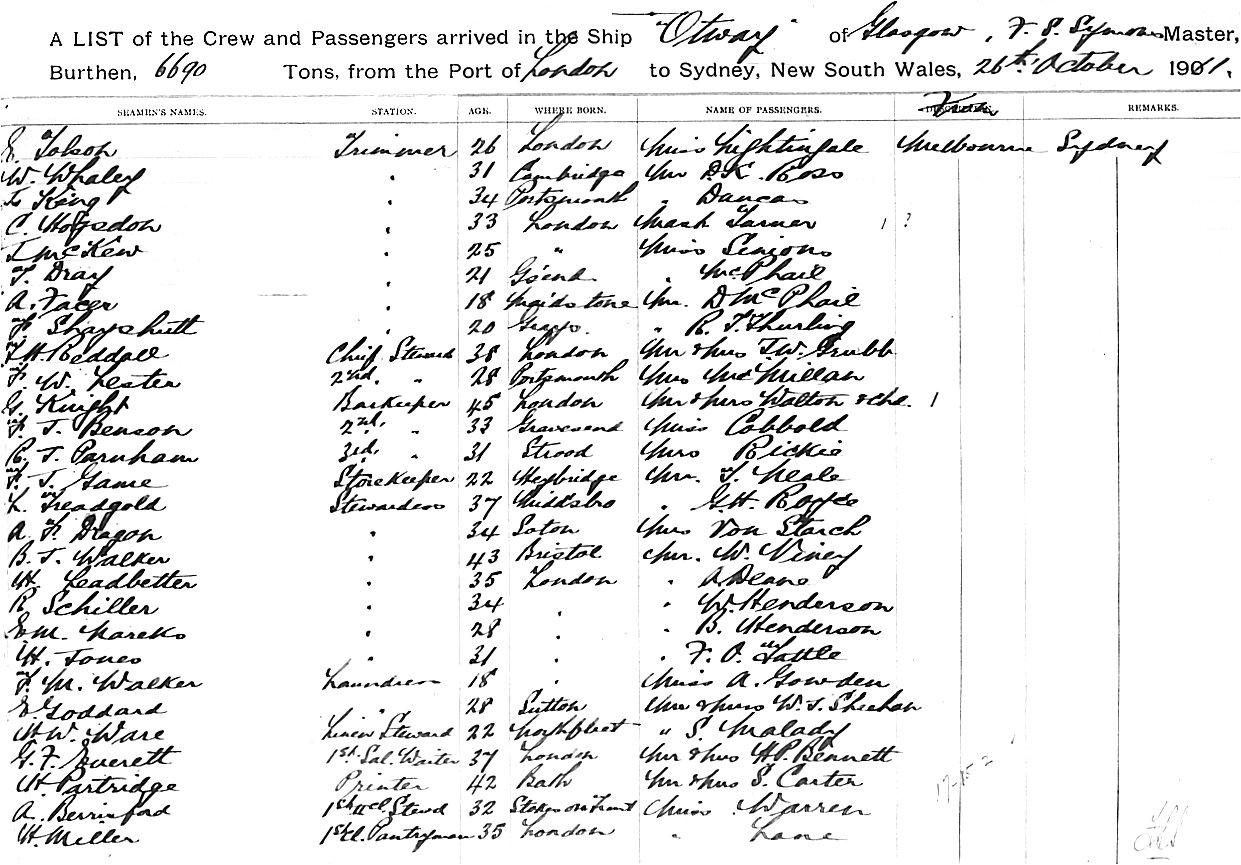 A LIST of the Crew and Passengers arrived in the Ship "Otway" of Glasgow, F. S. Symons Master,
Burthen, 6690 Tons, from the Port of London to Sydney, New South Wales, 26th October 1901.
SEAMEN'S NAMES. STATION. AGE. WHERE BORN. NAME OF PASSENGERS. From REMARKS.
E. Tolson Trimmer 26 London Miss Nightingale Melbourne Sydney
W. Whaley " 31 Cambridge Mr D.K. Ross
King " 34 Portsmouth "
C. Hogsdon " 33 London Mast Turner 1 ?
McKew " 25 " Miss Senions
T. Dray " 21 G's'end " McPhail
A. Facer " 18 Maidstone Mr. D McPhail
F Shayshutt " 20 Grays. " R. T. Thurling
H Beddall Chief Steward 38 London Mr & Mrs T.W. Grubb
F W. Lester 2nd. " 28 Portsmouth Mrs McMillan
G. Knight Barkeeper 45 London Mr & Mrs Walton & Chd. 1
F. T. Benson 2nd. " 33 Gravesend Miss Cobbold
R. T. Parnham 3rd. " 31 Strood Mrs Rickie
F. T. Game Storekeeper 22 Heybridge Mr. T. Neale
L. Treadgold Stewardess 37 Middsbro " G.H. Royce
A. F. Dragon " 34 Luton Mrs Von Starch
B. T. Walker " 43 Bristol Mr. W. Viney
H. Leadbetter " 35 London " A. Deane
R. Schiller " 34 " " W. Henderson
E M. Mareks " 28 " " B. Henderson
H. Jones " 31 " " F. O. Tattle
F. M. Walker Laundress 18 " Miss A. Gowden
E Goddard " 28 Sutton Mr & Mrs W. J. Sheehan
H. W. Ware Linen Steward 22 Northfleet " S. Malady
G. F. Everett 1st Sal. Waiter 37 London Mr & Mrs H.P. Bennett
H. Partridge Printer 42 Bath Mr & Mrs S. Carter
A. Berrisford 1st Cl. Stewd 32 Stoke on Trent Miss Warren
H. Miller 1st Cl. Pantryman 35 London " Lane